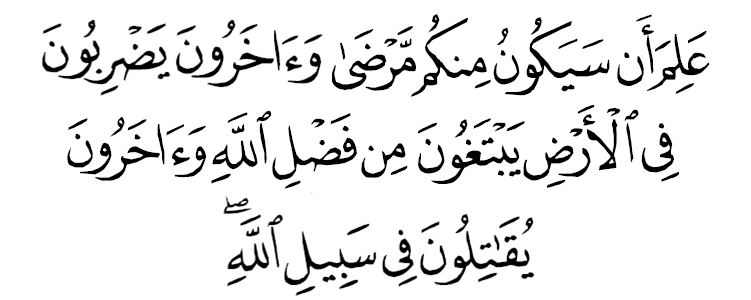 عَلِمَ أَن سَيَكُونُ مِنكُم مَّرۡضَىٰ وَءَاخَرُونَ يَضۡرِبُونَ
فِي ٱلۡأَرۡضِ يَبۡتَغُونَ مِن فَضۡلِ ٱللَّهِ وَءَاخَرُونَ
يُقَٰتِلُونَ فِي سَبِيلِ ٱللَّهِۖ